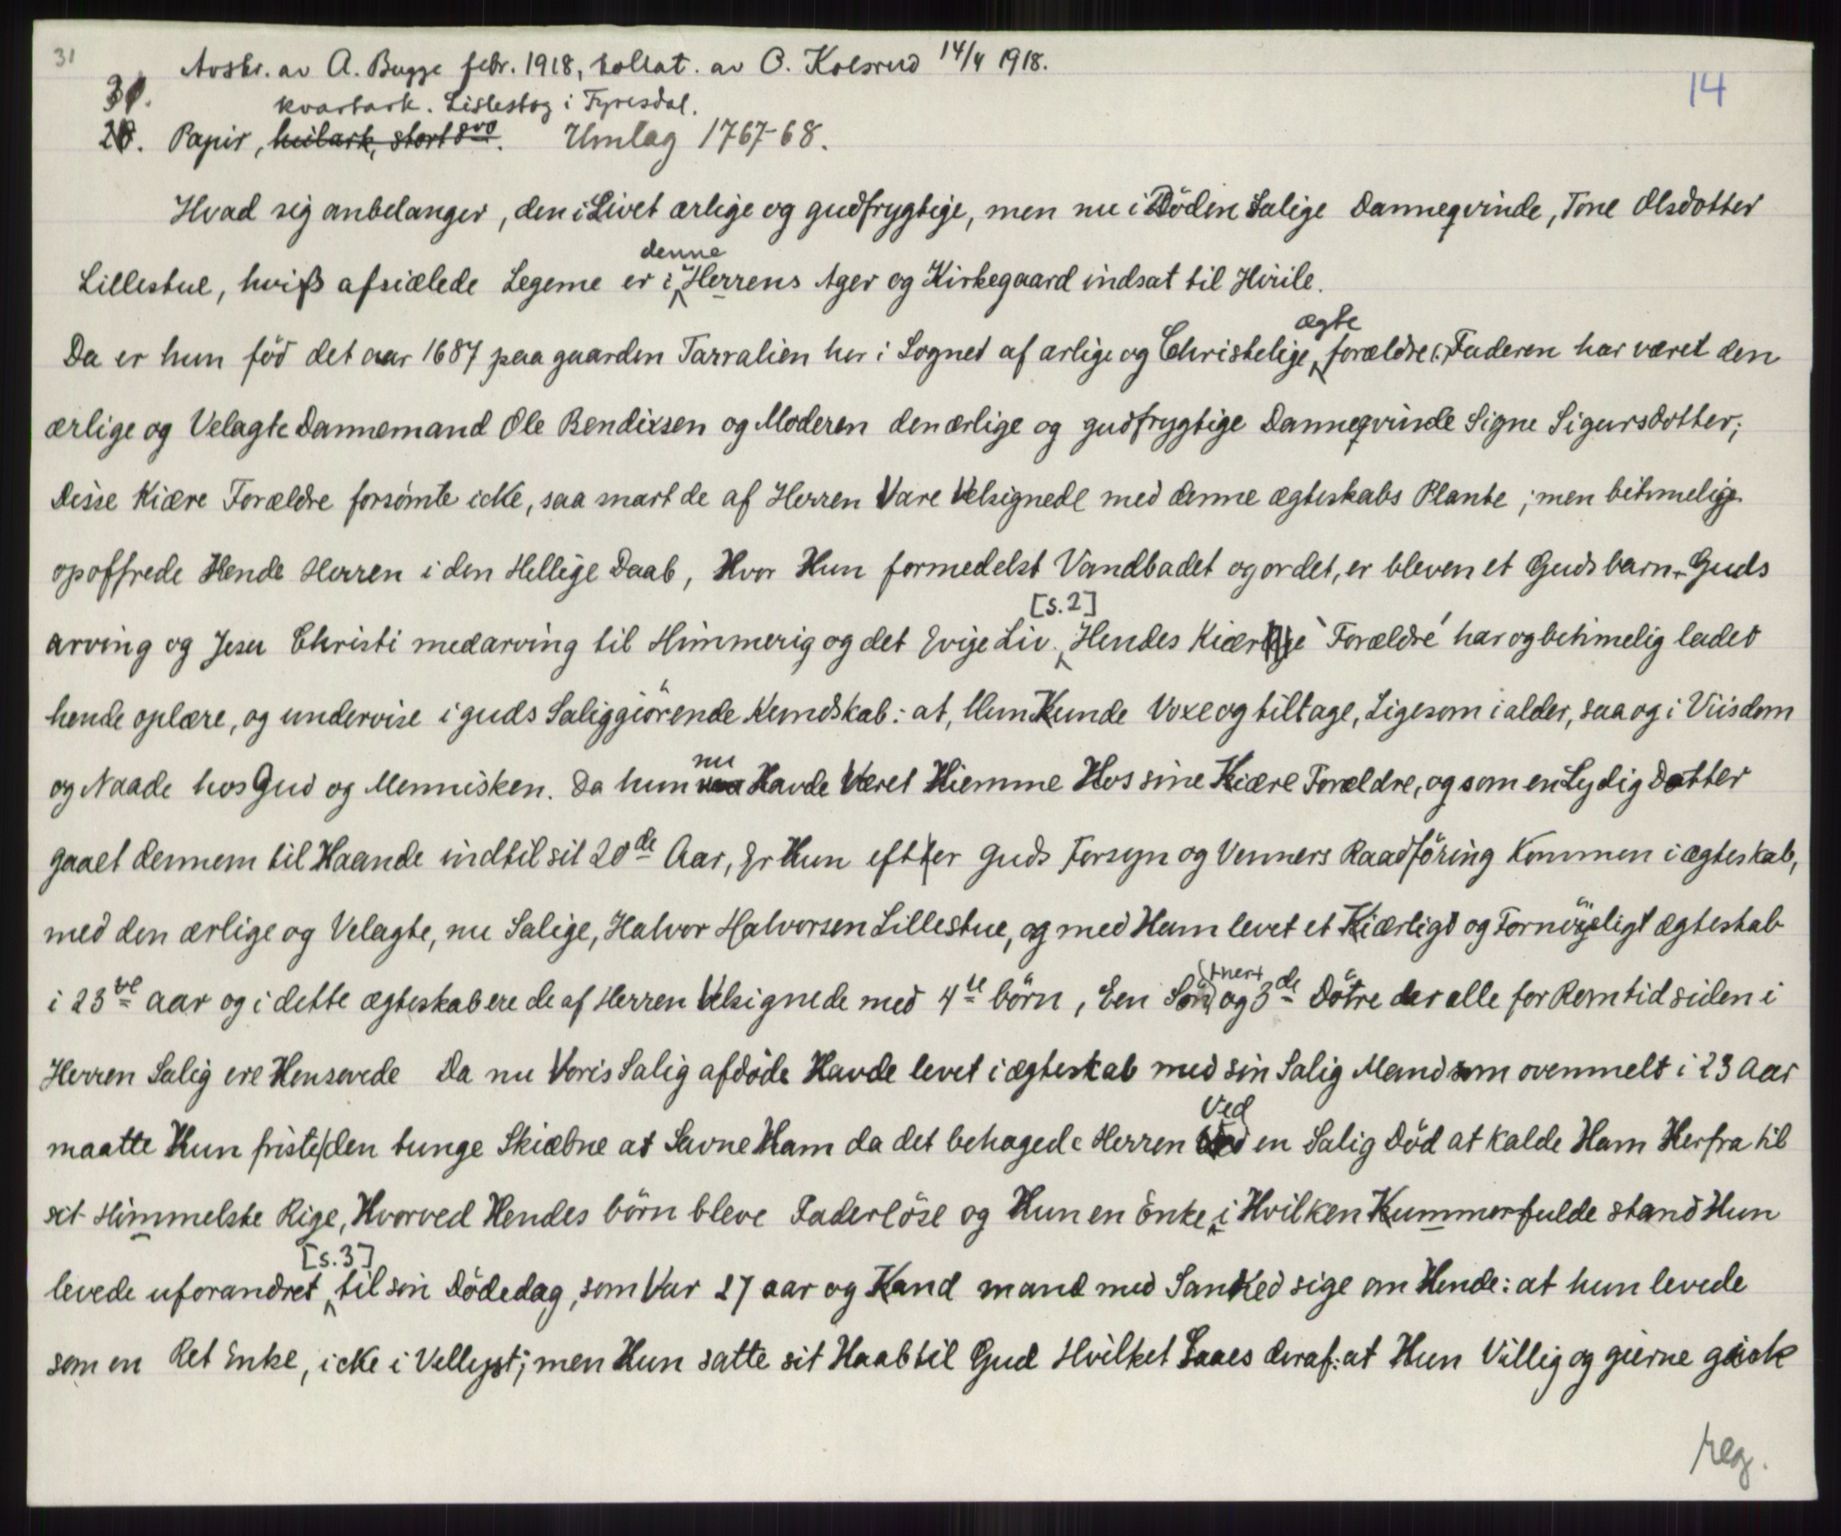 31
Avskr. av A. Bugge febr. 1918, kollat. av O. Kolsrud 14/4 1918.
14
31.
kvartark. Lislestog i Fyresdal.
28. Papir, heilark, stort 8vo. Umlag 1767-68.
Hvad sig anbelanger, den i Livet ærlige og gudfrygtige, men nu i Döden Salige Danneqvinde, Tone Olsdotter
denne
Lillestue, hviß afsiælede Legeme er i Herrens Ager og Kirkegaard indsat til Hviile.
ægte
Da er hun föd det aar 1687 paa gaarden Tarralien her i Sognet af ærlige og Christelige forældre (: Faderen har været den
ærlige og Velagte Dannemand Ole Bendixsen og Moderen den ærlige og gudfrygtige Danneqvinde Signe Sigursdotter;
Disse Kiære Forældre forsömte icke, saa snart de af Herren Vare Velsignede med denne ægteskabs Plante; men betimelige
opoffrede Hende Herren i den Hellige Daab, Hvor Hun formedelst Vandbadet og ordet, er bleven et Guds barn, Guds
[s. 2]
arving og Jesu Christi medarving til Himmerig og det Evige Liv. Hendes Kiære Forældre har og betimelig ladet
hende oplære, og undervise i guds Saliggiörende Kundskab: at, Hun Kunde Voxe og tiltage, Ligesom i alder, saa og i Viisdom
nu
og Naade hos Gud og Mennisken. Da hun Havde Været Hiemme Hos sine Kiære Forældre, og som en Lydig Dotter
gaaet dennem til Haande indtil sit 20de Aar, Er Hun efter Guds Forsyn og Venners Raadföring Kommen i ægteskab,
med den ærlige og Velagte, nu Salige, Halvor Halvorsen Lillestue, og med Ham levet et Kiærligt og Fornöyeligt ægteskab
i 23ve aar og i dette ægteskab ere de af Herren Velsignede med 4re börn, Een Sön og 3de Dötre der alle for Rom tid siden i
Herren Salig ere Hensovede Da nu Voris Salig afdöde Havde levet i ægteskab med sin Salig Mand som ovenmelt i 23 Aar
Ved
maatte Hun friste den tunge Skiæbne at Savne Ham da det behagede Herren en Salig Död at kalde Ham Herfra til
sit Himmelske Rige, Hvorved Hendes börn bleve Faderlöse og Hun en Enke, i Hvilken Kummerfulde stand Hun
[s. 3]
levede uforandret til sin Dödedag, som Var 27 aar og Kand mand med Sanhed sige om Hende: at hun levede
som en Ret Enke, icke i Vellyst; men Hun satte sit Haab til Gud Hvilket Saaes deraf: at Hun Villig og gierne gick
reg.